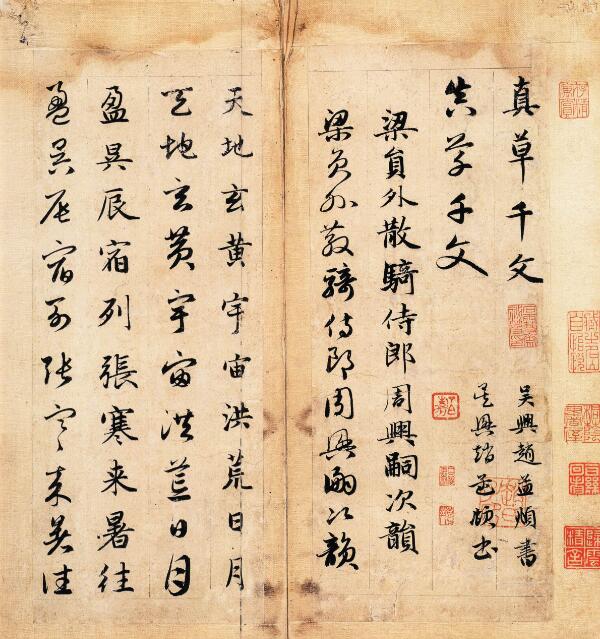 真草千文
吳興趙孟頫書
真草千文
吳興趙孟頫書
梁員外散騎侍郎周興嗣次韻
梁員外散騎侍郎周興嗣次韻
天地玄黃宇宙洪荒日月
天地玄黃宇宙洪荒日月
盈昃辰宿列張寒来暑往
盈昃辰宿列張寒来暑往